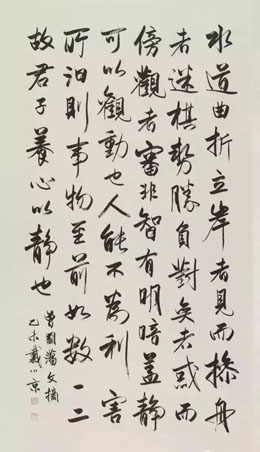 水道曲折立岸者見而操舟
者迷棋勢勝負對奕者惑而
傍觀者審非智有明暗蓋静
可以觀動也人能不為利害
所汩則事物至前如数一二
故君子養心以静也
曾國藩文摘
乙未戴小京